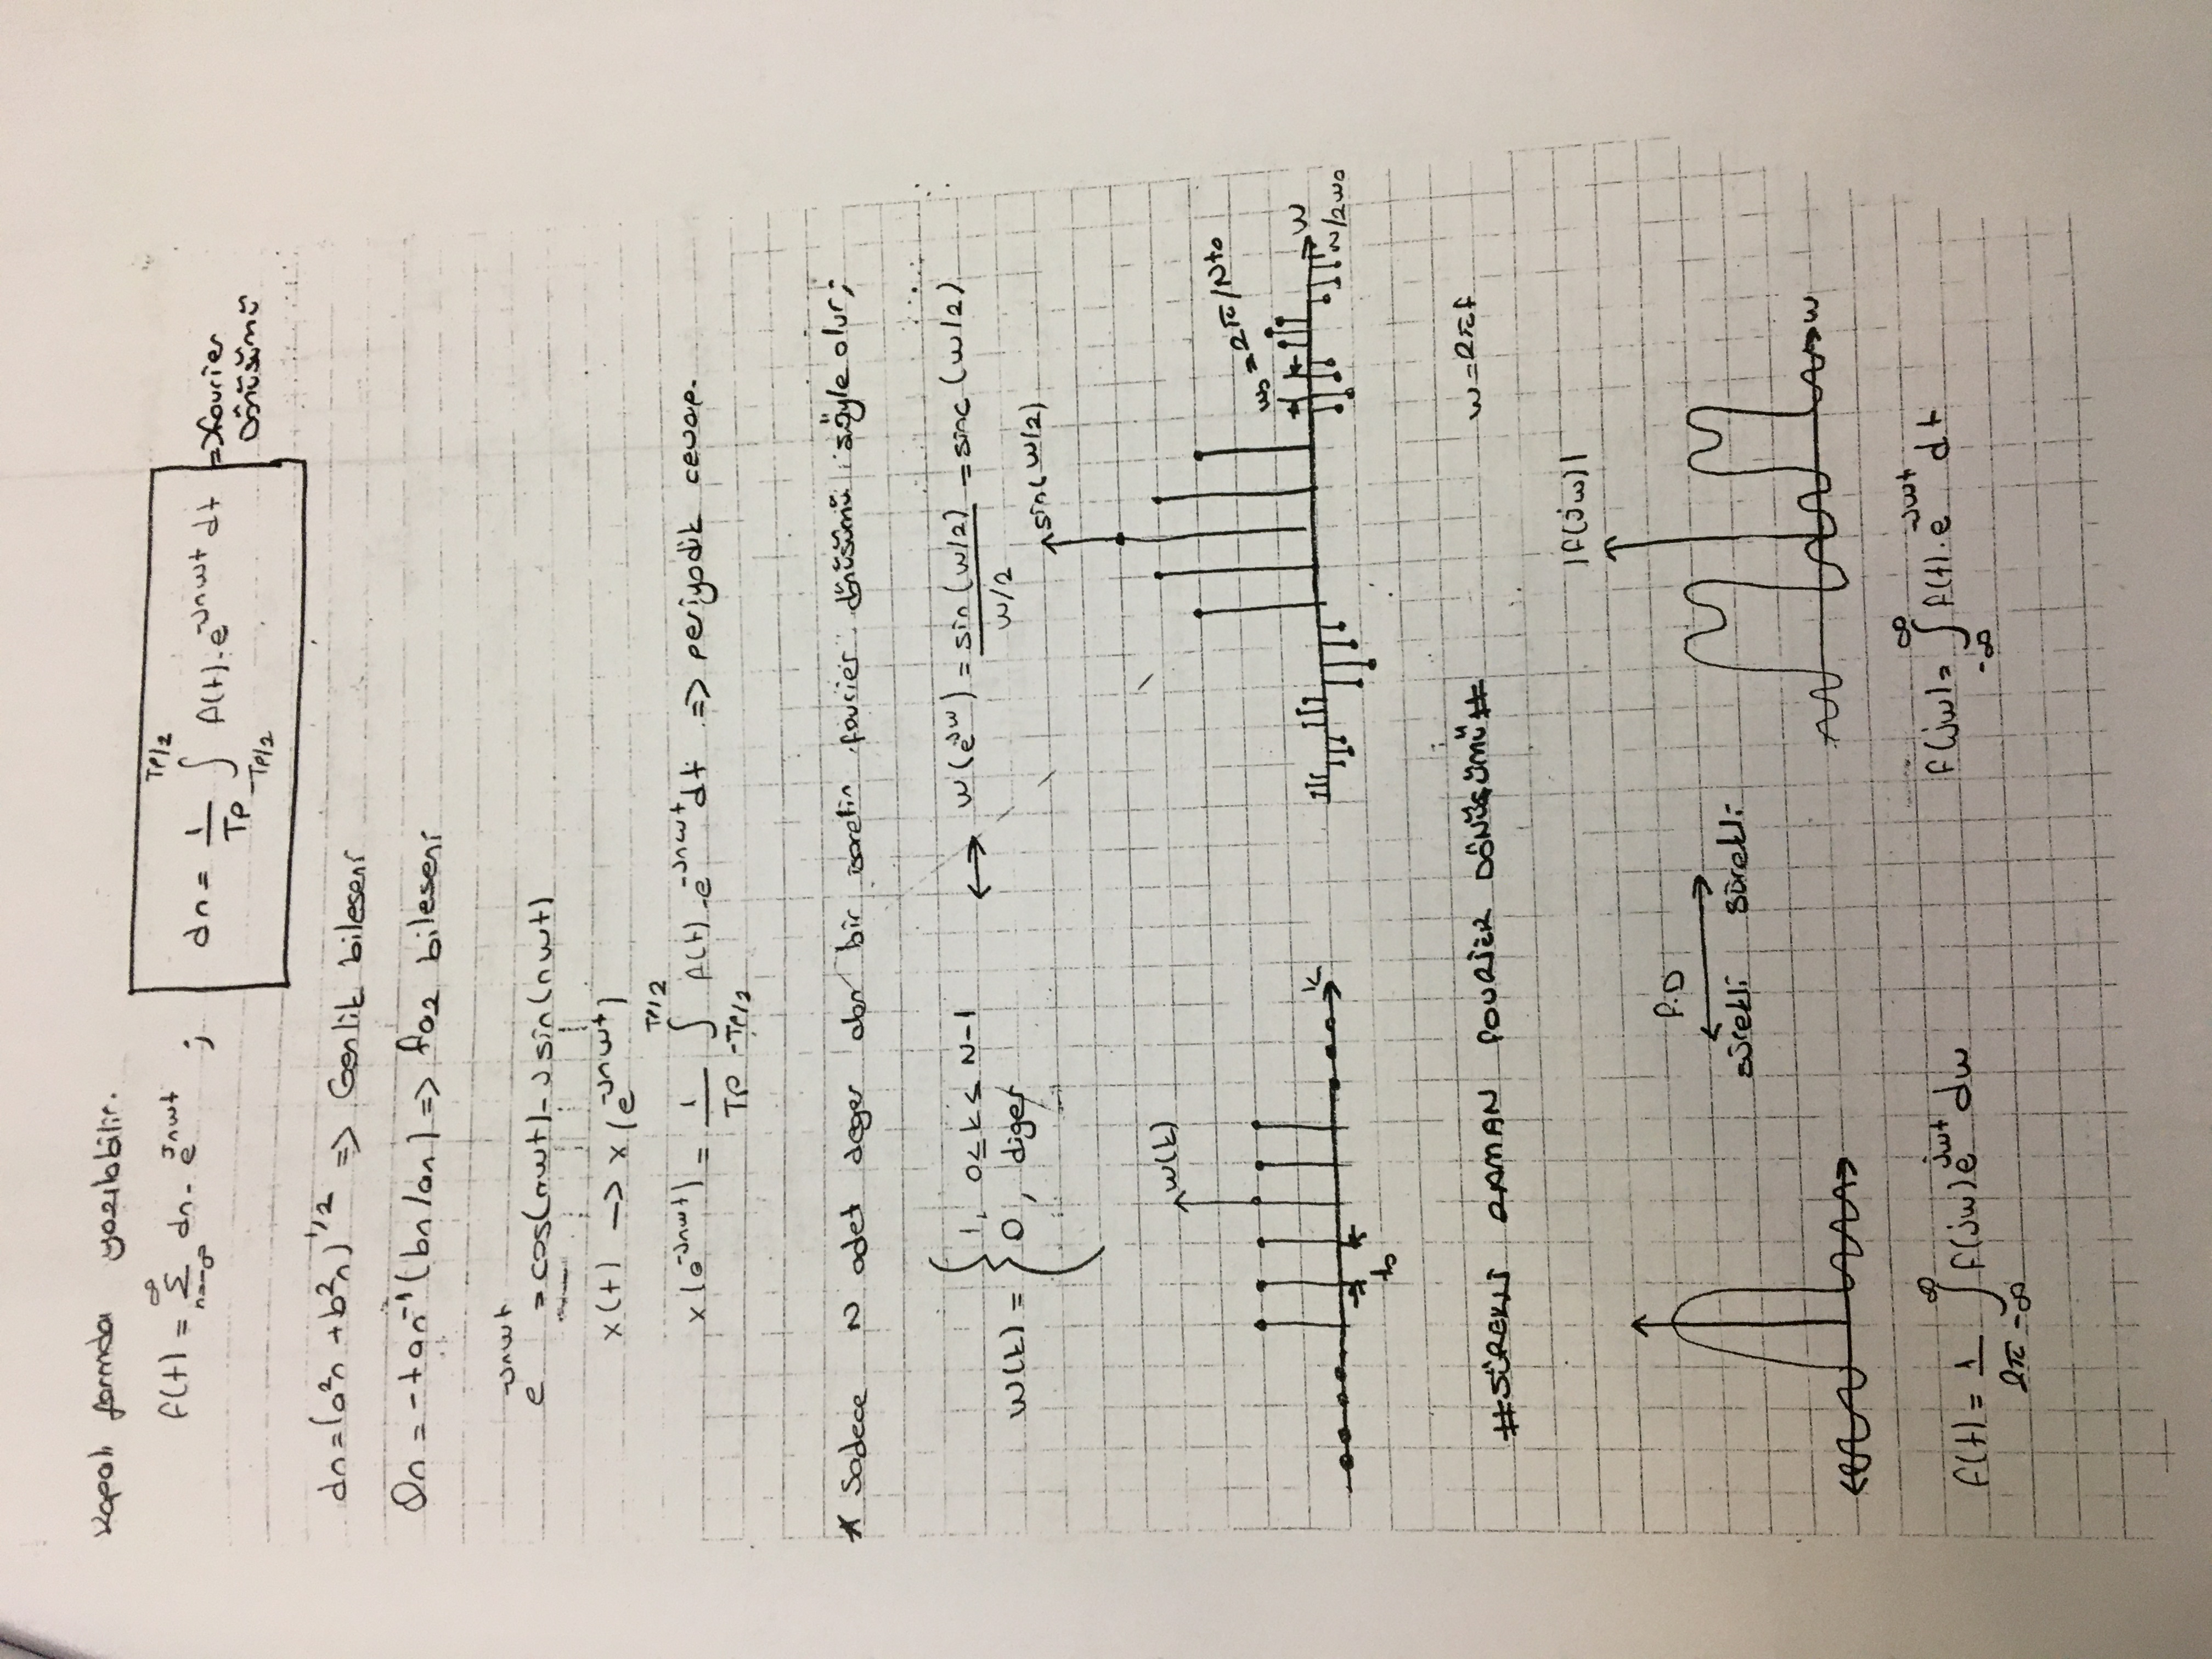 Kapalı formda yazılabilir.
f(t) = ∞ Σ n=-∞ dn. e^jnwt ; dn = 1/TP ∫ TP/2 -TP/2 f(t).e^-jnwt dt => fourier
Dönüşümü
dn=(a²n + b²n)^1/2 => Genlik bileseni
Θn = -tan^-1(bn/an) => faz bileseni
e^-jnwt = cos(nwt) - J sin(nwt)
x(t) -> x(e^-jnwt)
x(e^-jnwt) = 1/TP ∫ TP/2 -TP/2 f(t).e^-jnwt dt => periyodik cevap.
* Sadece N adet deger alan bir isaretin fourier dönüsümü söyle olur;
w(k) = { 1, 0≤k≤N-1 ↔ w(e^jw) = sin(w/2)/w/2 = sinc(w/2)
0, diger
sin(w/2)
w(k)
w0 = 2π/Nt0
k
w
N/2w0
t0
#SÜREKLİ ZAMAN FOURİER DÖNÜŞÜMÜ#
w=2πf
|f(jw)|
F.D
sürekli sürekli
w
f(t) = 1/2π ∫ ∞ -∞ f(jw)e^jwt dw
f(jw) = ∫ ∞ -∞ f(t).e^-jwt dt